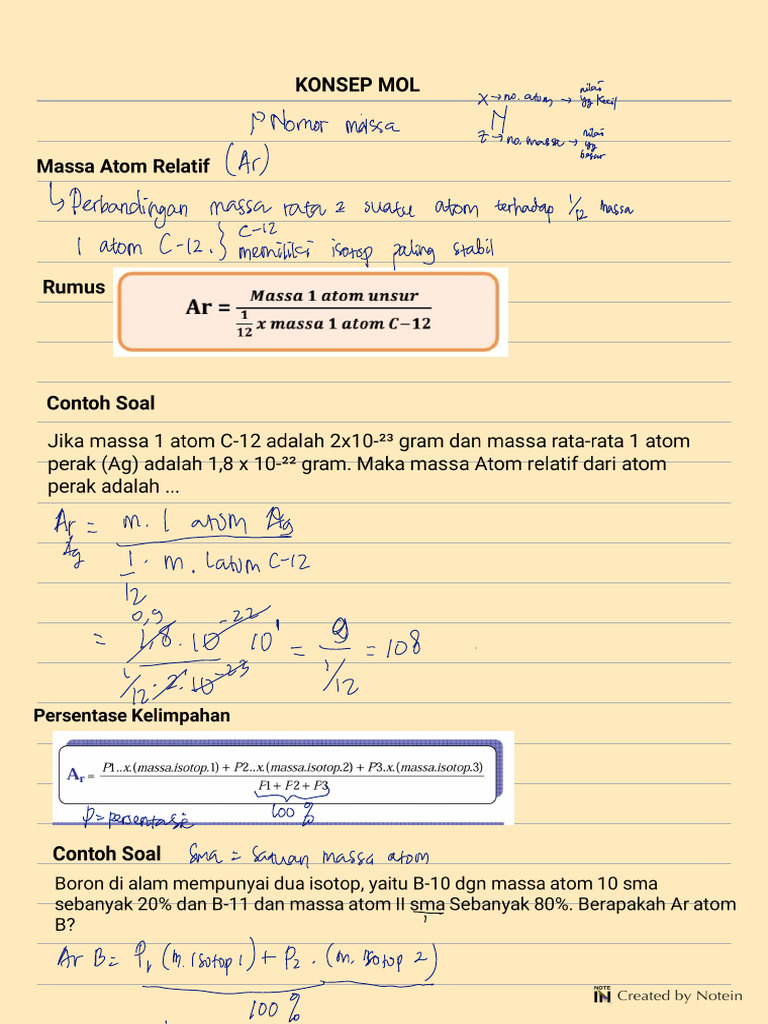 KONSEP MOL
X → no. atom → nilai yg kecil
N
Nomor massa
Z → no. massa → nilai yg besar
Massa Atom Relatif (Ar)
↳ Perbandingan massa rata2 suatu atom terhadap 1/12 massa
1 atom C-12. } C-12 memiliki isotop paling stabil
Rumus
Ar = Massa 1 atom unsur / 1/12 x massa 1 atom C−12
Contoh Soal
Jika massa 1 atom C-12 adalah 2x10-²³ gram dan massa rata-rata 1 atom
perak (Ag) adalah 1,8 x 10-²² gram. Maka massa Atom relatif dari atom
perak adalah ...
Ar Ag = m. 1 atom Ag
1/12 . m. 1 atom C-12
0,9
= 1,8 . 10-22 10¹ / 1/12 . 2 . 10-23 = 9 / 1/12 = 108
Persentase Kelimpahan
Ar = P1..x.(massa.isotop.1) + P2..x.(massa.isotop.2) + P3.x.(massa.isotop.3)
F1 + F2 + F3
P = persentase 100 %
Contoh Soal sma = satuan massa atom
Boron di alam mempunyai dua isotop, yaitu B-10 dgn massa atom 10 sma
sebanyak 20% dan B-11 dan massa atom II sma Sebanyak 80%. Berapakah Ar atom
B?
Ar B = P1 (m. isotop 1) + P2 . (m. isotop 2)
100 %
NOTE IN Created by Notein